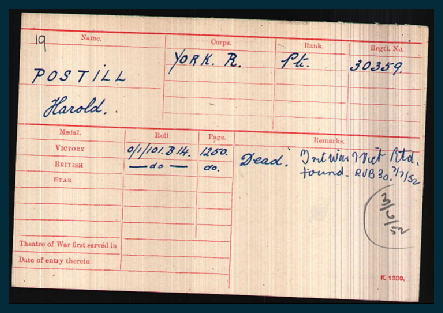 19
Name. Corps. Rank. Regtl. No.
POSTILL YORK. R. Pte. 30359.
Harold.
Medal. Roll. Page. Remarks.
VICTORY O/1/101.B14. 1250. Dead.
BRITISH —do— do. found.
STAR
3/6/52
Theatre of War first served in
Date of entry therein
K. 1380.